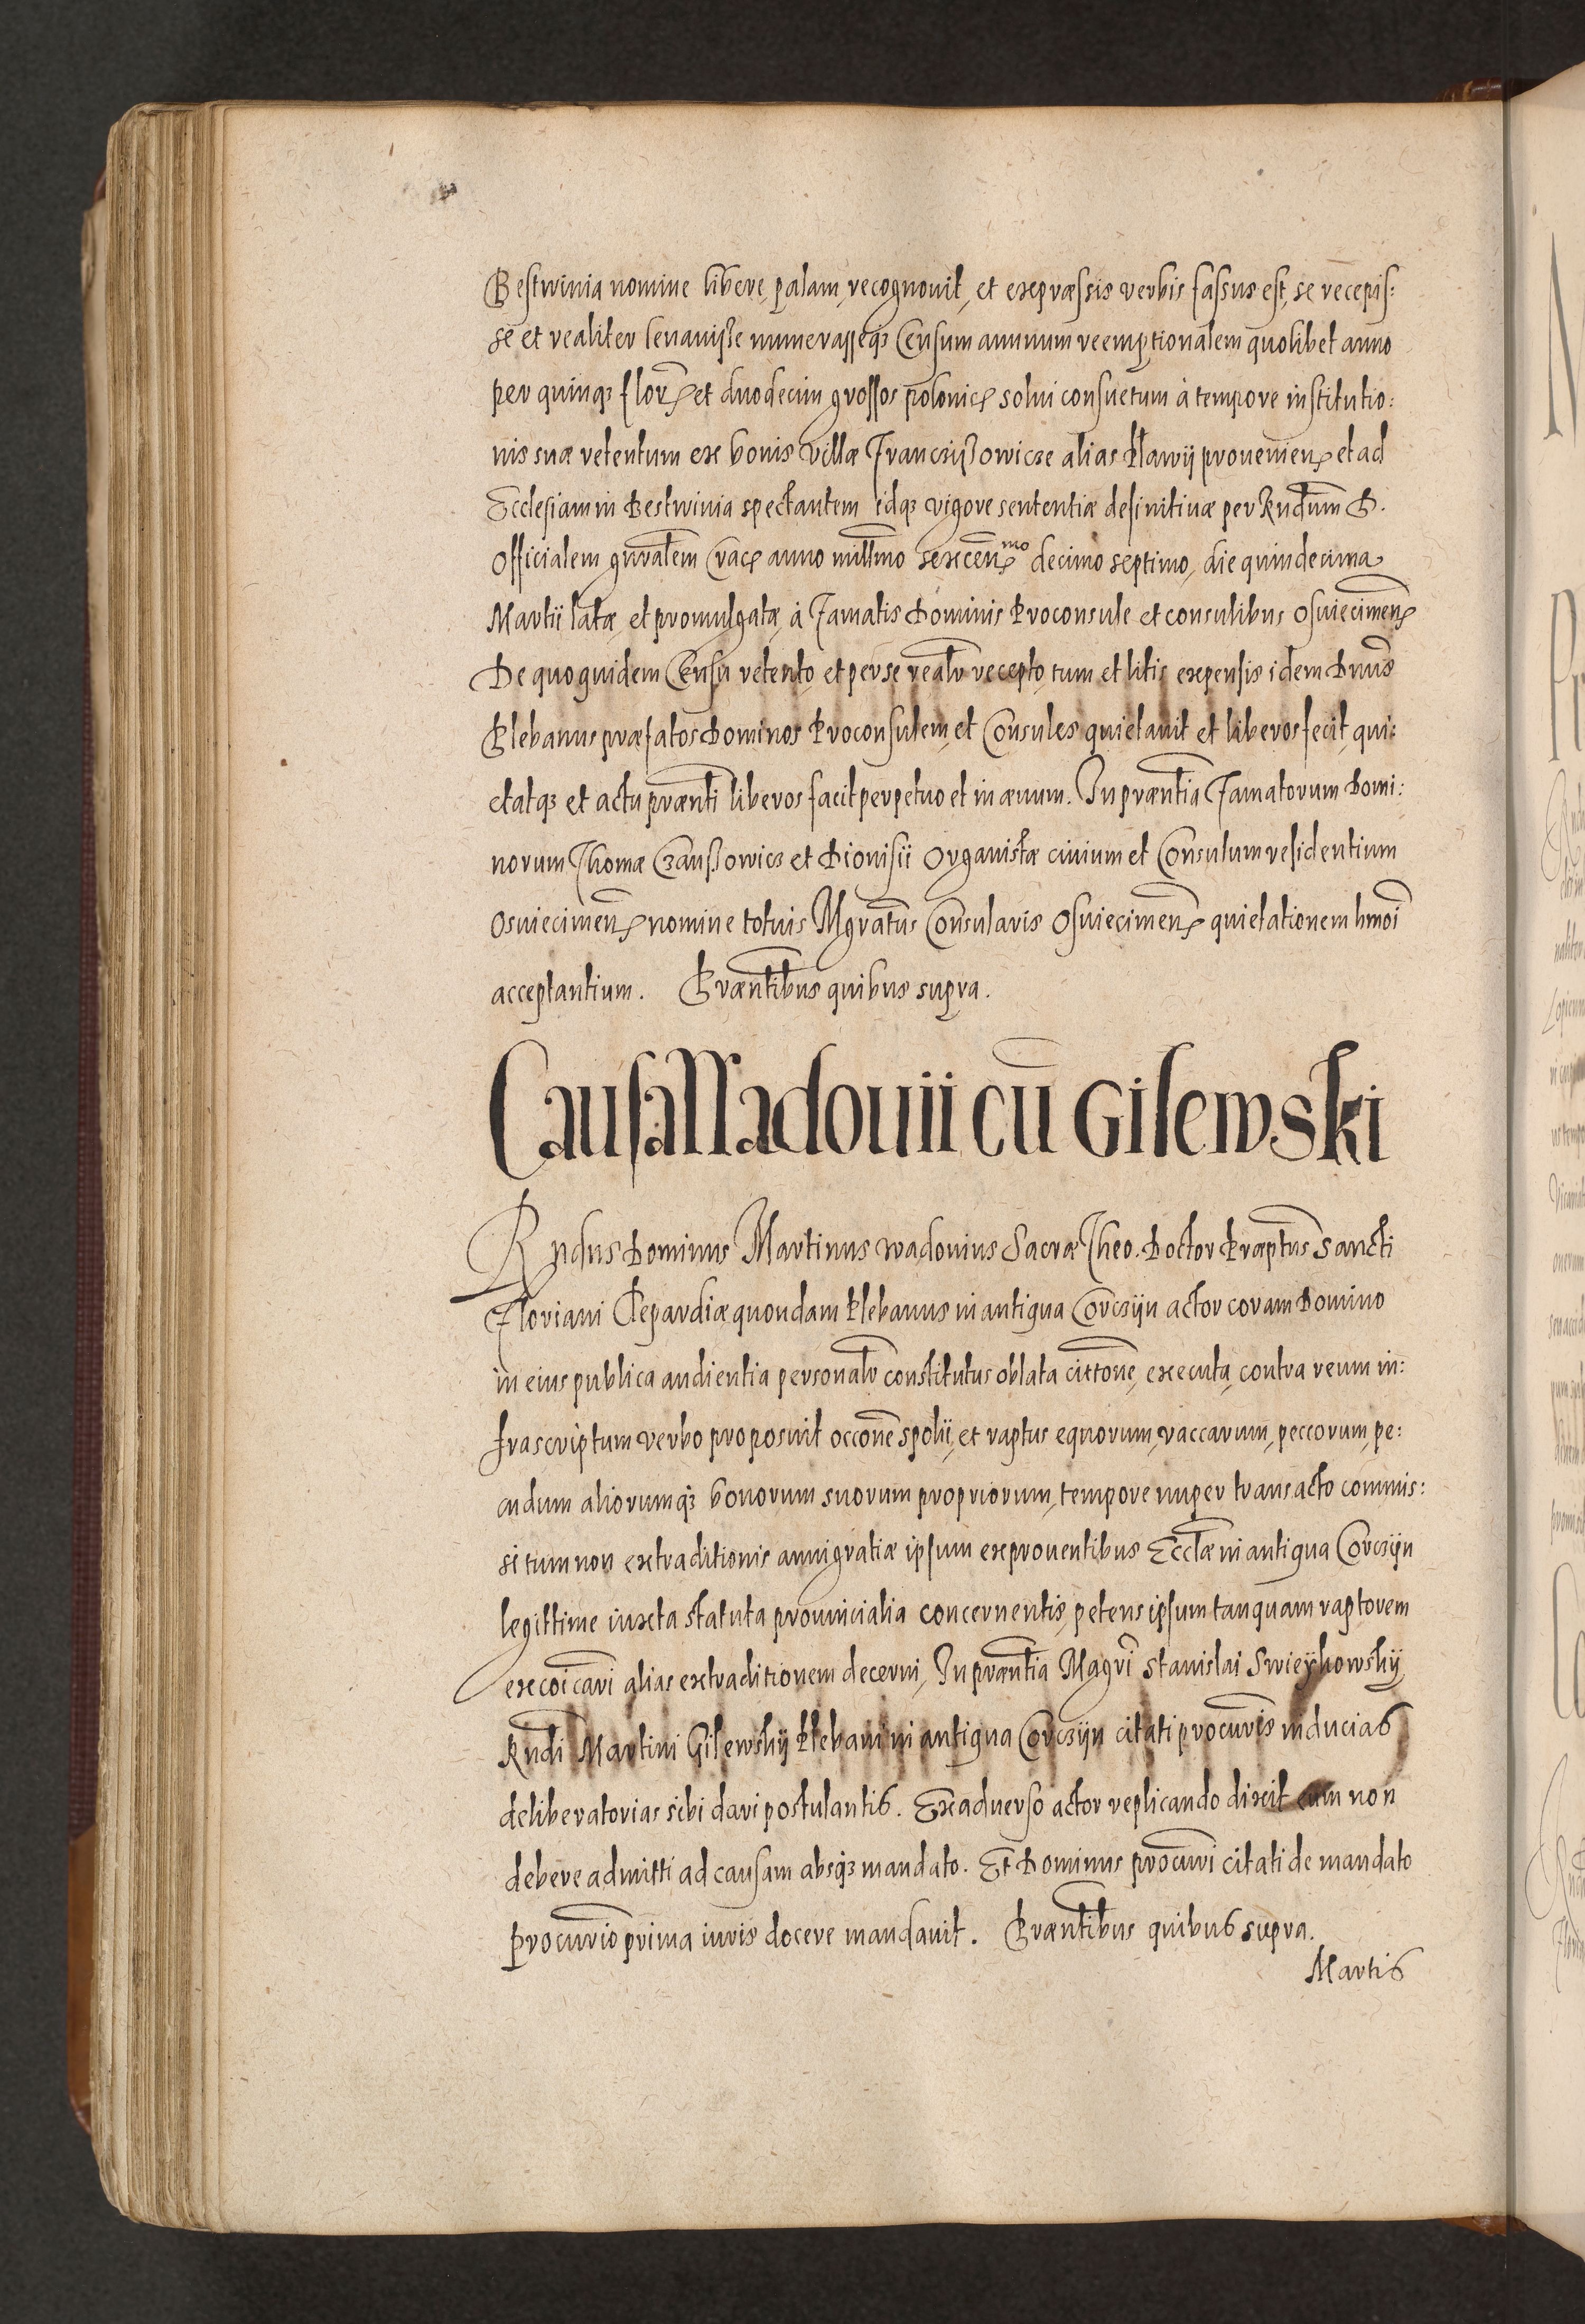 Bestwinia nomine libere, palam, recognovit, et expræssis verbis fassus est, se recepis:
se et realiter levavisse numerasseqȝ Censum annuum reemptionalem quolibet anno
per quinqȝ flor̄ et duodecim grossos polonic̄ solui consuetum à tempore institutio:
nis suæ retentum ex bonis villæ Franciszowicze alias Pławÿ provenien̄ et ad
Ecclesiam in Bestwinia spectantem idqȝ vigore sententiæ definitivæ per Rndum D.
Officialem gnralem Crac̄ anno millmo sexcen̄mo decimo septimo, die quindecima
Martii latæ, et promulgatæ, à Famatis Dominis Proconsule et consulibus Osuiecimen̄
De quo quidem Censu retento, et per se realr recepto, tum et litis expensis idem Dnus
Plebanus præfatos Dominos Proconsulem, et Consules quietauit et liberos fecit, qui:
etatqȝ et actu prænti liberos facit perpetuo et in æuum. In præntia Famatorum Domi:
norum Thomæ Czauszowicz et Dionisii Organistæ ciuium et Consulum residentium
Osuiecimen̄ nomine totius Mgratus Consularis Osuiecimen̄ quietationem hmoi
acceptantium. Præntibus quibus supra.
Causa Vadouii cū Gilewski
Rndus Dominus Martinus Wadouius Sacræ Theo. Doctor Præptus Sancti
Floriani Clepardiæ quondam Plebanus in antiqua Corczÿn actor coram Domino
in eius publica audientia personalr constitutus oblata cittone, executa, contra reum in:
frascriptum verbo proposuit occone spolii, et raptus equorum, vaccarum, peccorum, pe:
cudum aliorumqȝ bonorum suorum propriorum, tempore nuper transacto commis:
si tum non extraditionis anni gratiæ ipsum ex prouentibus Ecclæ in antiqua Corczÿn
legittime iuxta statuta prouincialia concernentis, petens ipsum tanquam raptorem
excoicari alias extraditionem decerni, In præntia Magri Stanislai Swieÿkowskÿ
Rndi Martini Gilewskÿ Plebani in antiqua Corczÿn citati procuris inducias
deliberatorias sibi dari postulantis. Ex aduerso actor replicando dixit eum non
debere admitti ad causam absqȝ mandato. Et Dominus procuri citati de mandato
Procurio prima iuris docere mandauit. Præntibus quibus supra.
Martis